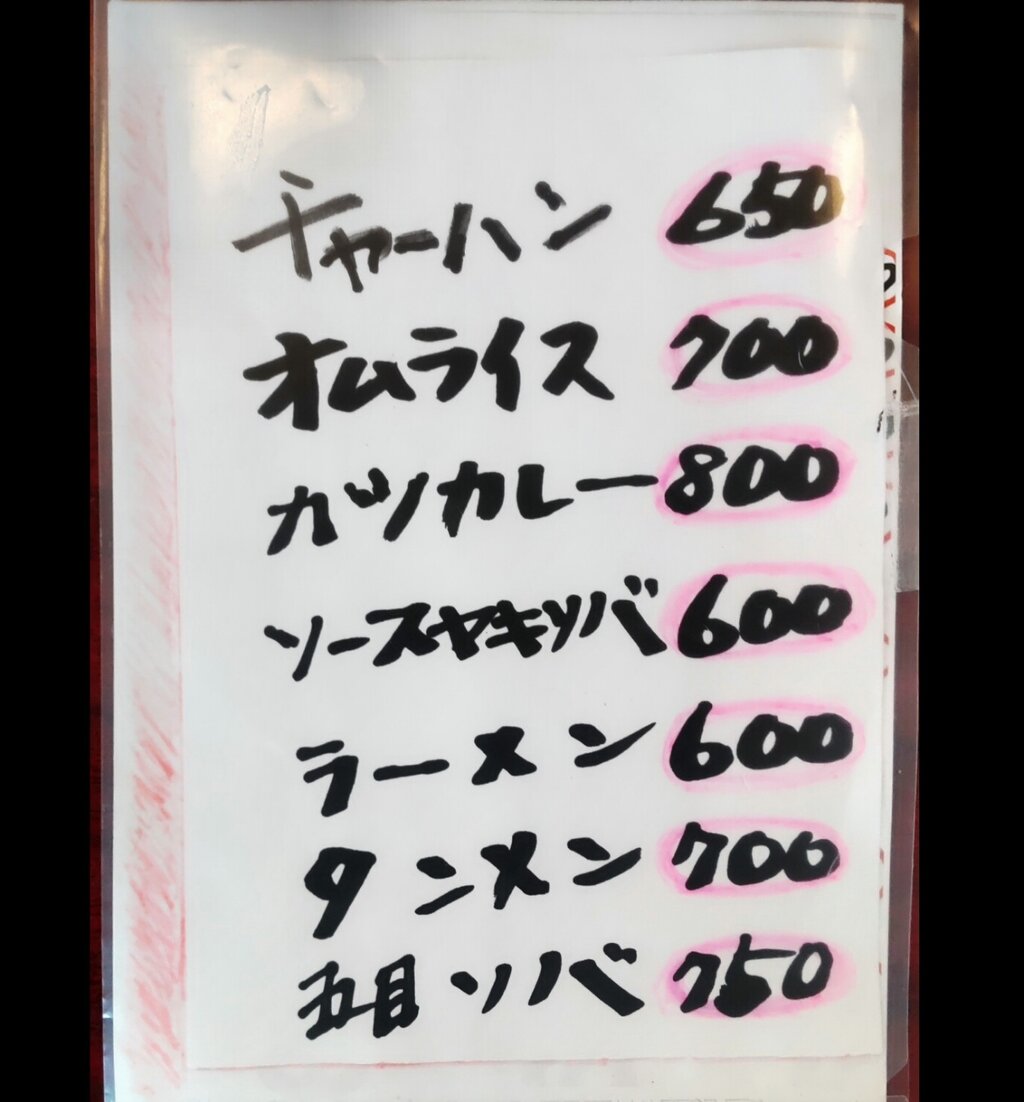 チャーハン 650
オムライス 700
カツカレー 800
ソースヤキソバ 600
ラーメン 600
タンメン 700
五目ソバ 750